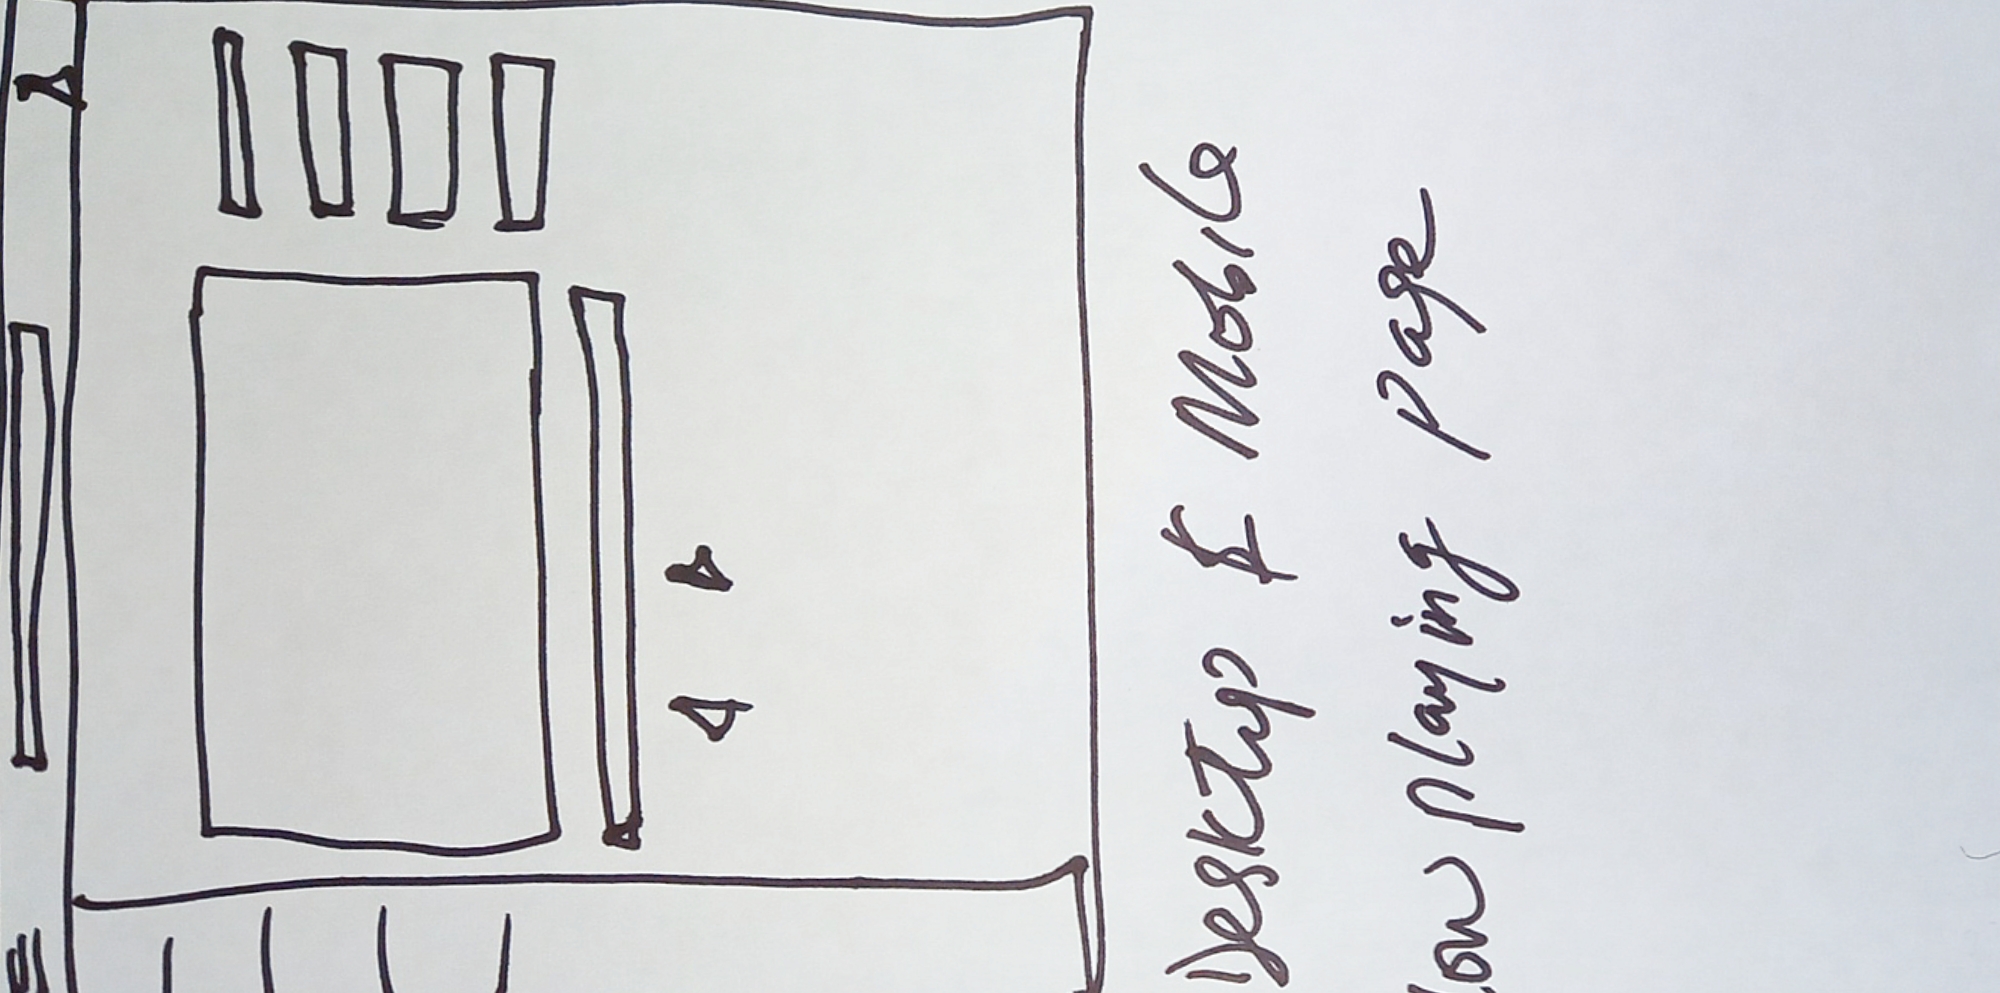 Desktop & Mobile
low playing page